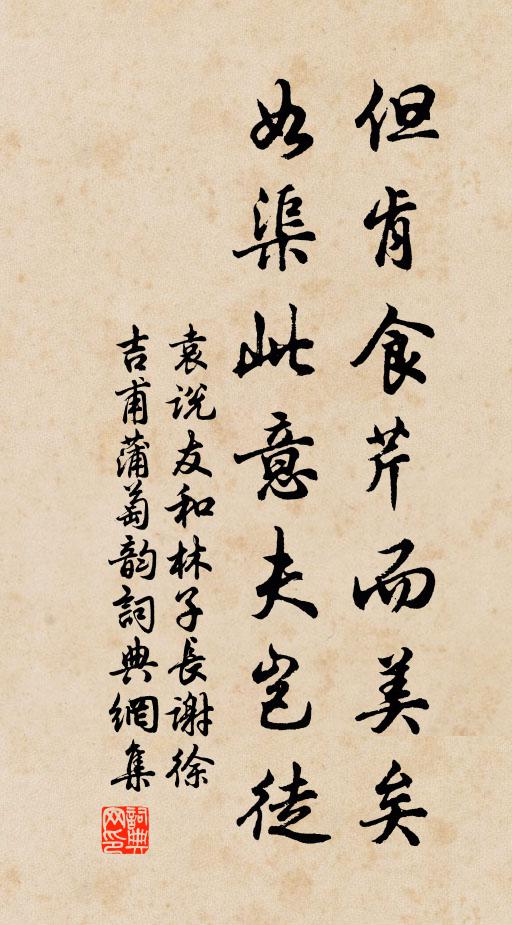 但肯食芹而美矣
如渠此意夫岂徒
袁说友和林子長謝徐
吉甫蒲萄韵詞典網集
詞典网印